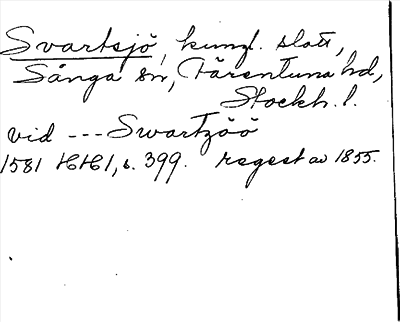 Svartsjö, kungl. slott,
Sånga sn, Färentuna hd,
Stockh. l.
vid --- Swartzöö
1581 HH1, s. 399. regest av 1855.